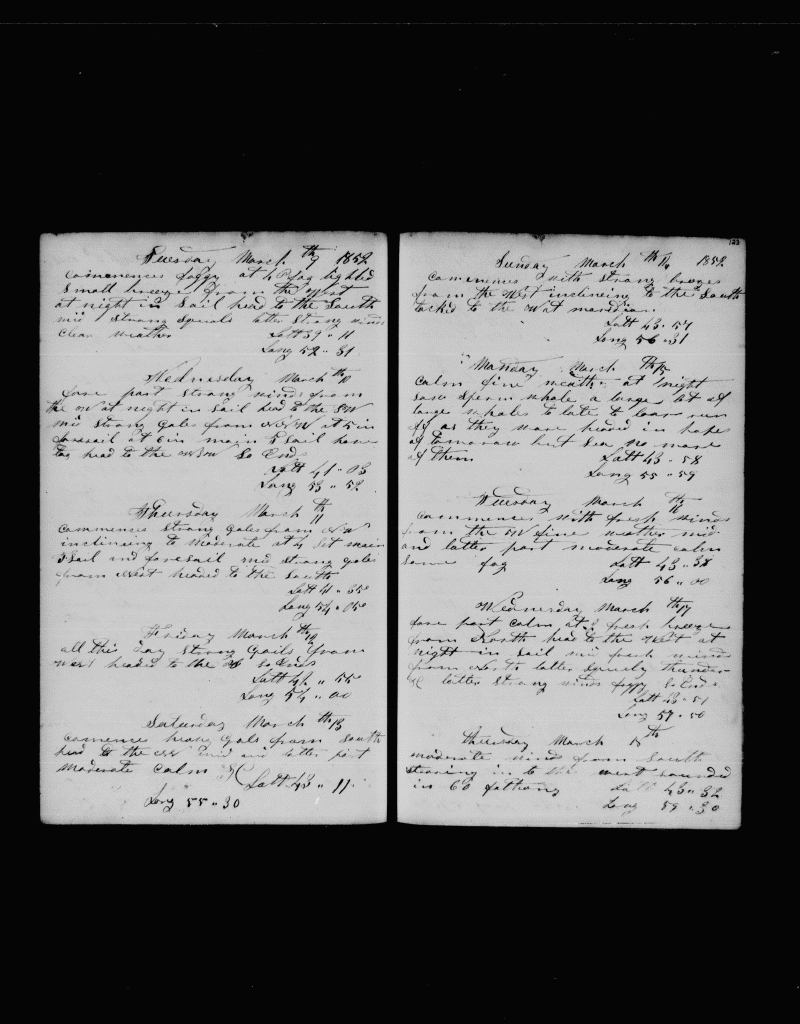 Tuesday March 9th 1852
Commences foggy at 4 P fog lighted
Small breeze from the West
at night in Sail head to the South
mid Strong Squals latter Strong winds
Clear weather Latt 39 " 11
Long 52 " 31
Wednesday March 10th
fore part Strong winds from
the W at night in Sail head to the SW
mid Strong Gales from NNW at 5 in
foresail at 6 in main T Sail
head to the WSW So Ends
Latt 41 " 03
Long 53 " 52
Thursday March 11th
Commences Strong Gales from NW
inclineing to Moderate at 4 Set main
T Sail and foresail mid strong gales
from West headed to the South
Latt 41 " 35
Long 54 " 05
Friday March 12th
all this day Strong Gails from
West headed to the So Ends
Latt 42 " 55
Long 54 " 00
Saturday March 13th
Comences heavy Gals from South
head to the mid and latter part
Moderate Calm &C
Latt 43 " 11
Long 55 " 30
123
Sunday March 14th 1852
Commences with strong breezes
from the West inclineing to the South
tacked to the W at meridian
Latt 43 " 57
Long 56 " 31
Monday March 15th
Calm fine weather at night
saw Sperm whale a large
large whales to late to loar run
off as they ware headed in hopes
of tomorrow but Sea no more
of them Latt 43 " 58
Long 55 " 59
Tuesday March 16th
Commences with fresh winds
from the W fine weather mid
and latter part moderate calm
Some fog Latt 43 " 38
Long 56 " 00
Wednesday March 17th
fore part Calm at 2 fresh breeze
from North head to the West at
night in Sail mid fresh winds
from latter thunder
&C latter Strong winds foggy So Ends
Latt 43 " 51
Long 57 " 50
Thursday March 18th
moderate wind from South
stearing in to the west sounded
in 60 fathoms Latt 43 " 32
Long 59 " 30